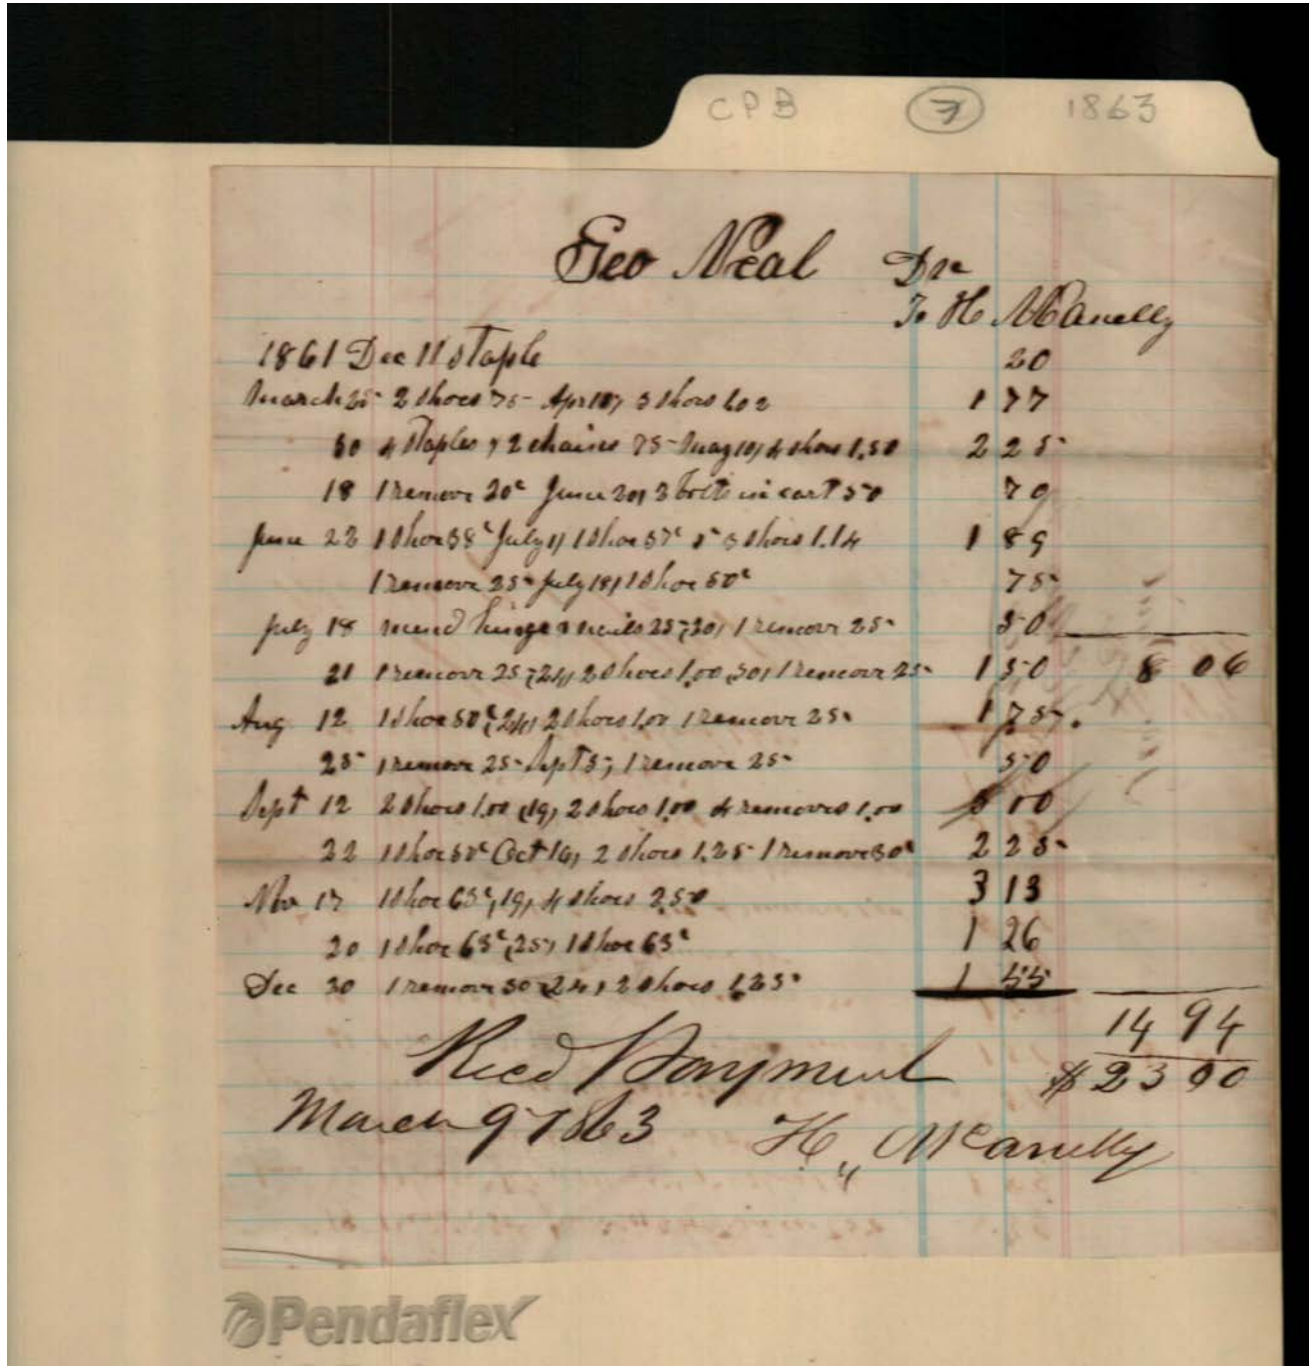 CPB 7 1863
Geo Neal Dr
To H McAnelly
1861 Dec 11 Staple 20
March 25 2 shoes 75 Apr 17, 3 shoes 1.02 1 77
30 4 Staples, 2 chaines 75 May 10, 4 shoes 1.50 2 25
18 1 remove 20c June 20, 2 bolts in cart 50 70
June 22 1 shoe 38c July 1, 1 shoe 37c 3 shoes 1.14 1 89
1 remove 25 July 18, 1 shoe 50c 75
July 18 mend hinge & nails 25, 20, 1 remove 25 50
21 1 remove 25, 24, 2 shoes 1.00, 30, 1 remove 25 1 50 8 06
Aug 12 1 shoe 50c, 24, 2 shoes 1.00 1 remove 25 1 75
25 1 remove 25 Sept 5, 1 remove 25 50
Sept 12 2 shoes 1.00, 19, 2 shoes 1.00 4 removes 1.00 3 00
22 1 shoe 50c Oct 16, 2 shoes 1.25 1 remove 50c 2 25
Nov 17 1 shoe 63c, 19, 4 shoes 2.50 3 13
20 1 shoe 63c, 25, 1 shoe 63c 1 26
Dec 30 1 remove 30 24, 2 shoes 1.25 1 55
14 94
Recd Payment $23 00
March 9 1863 H McAnelly
Pendaflex